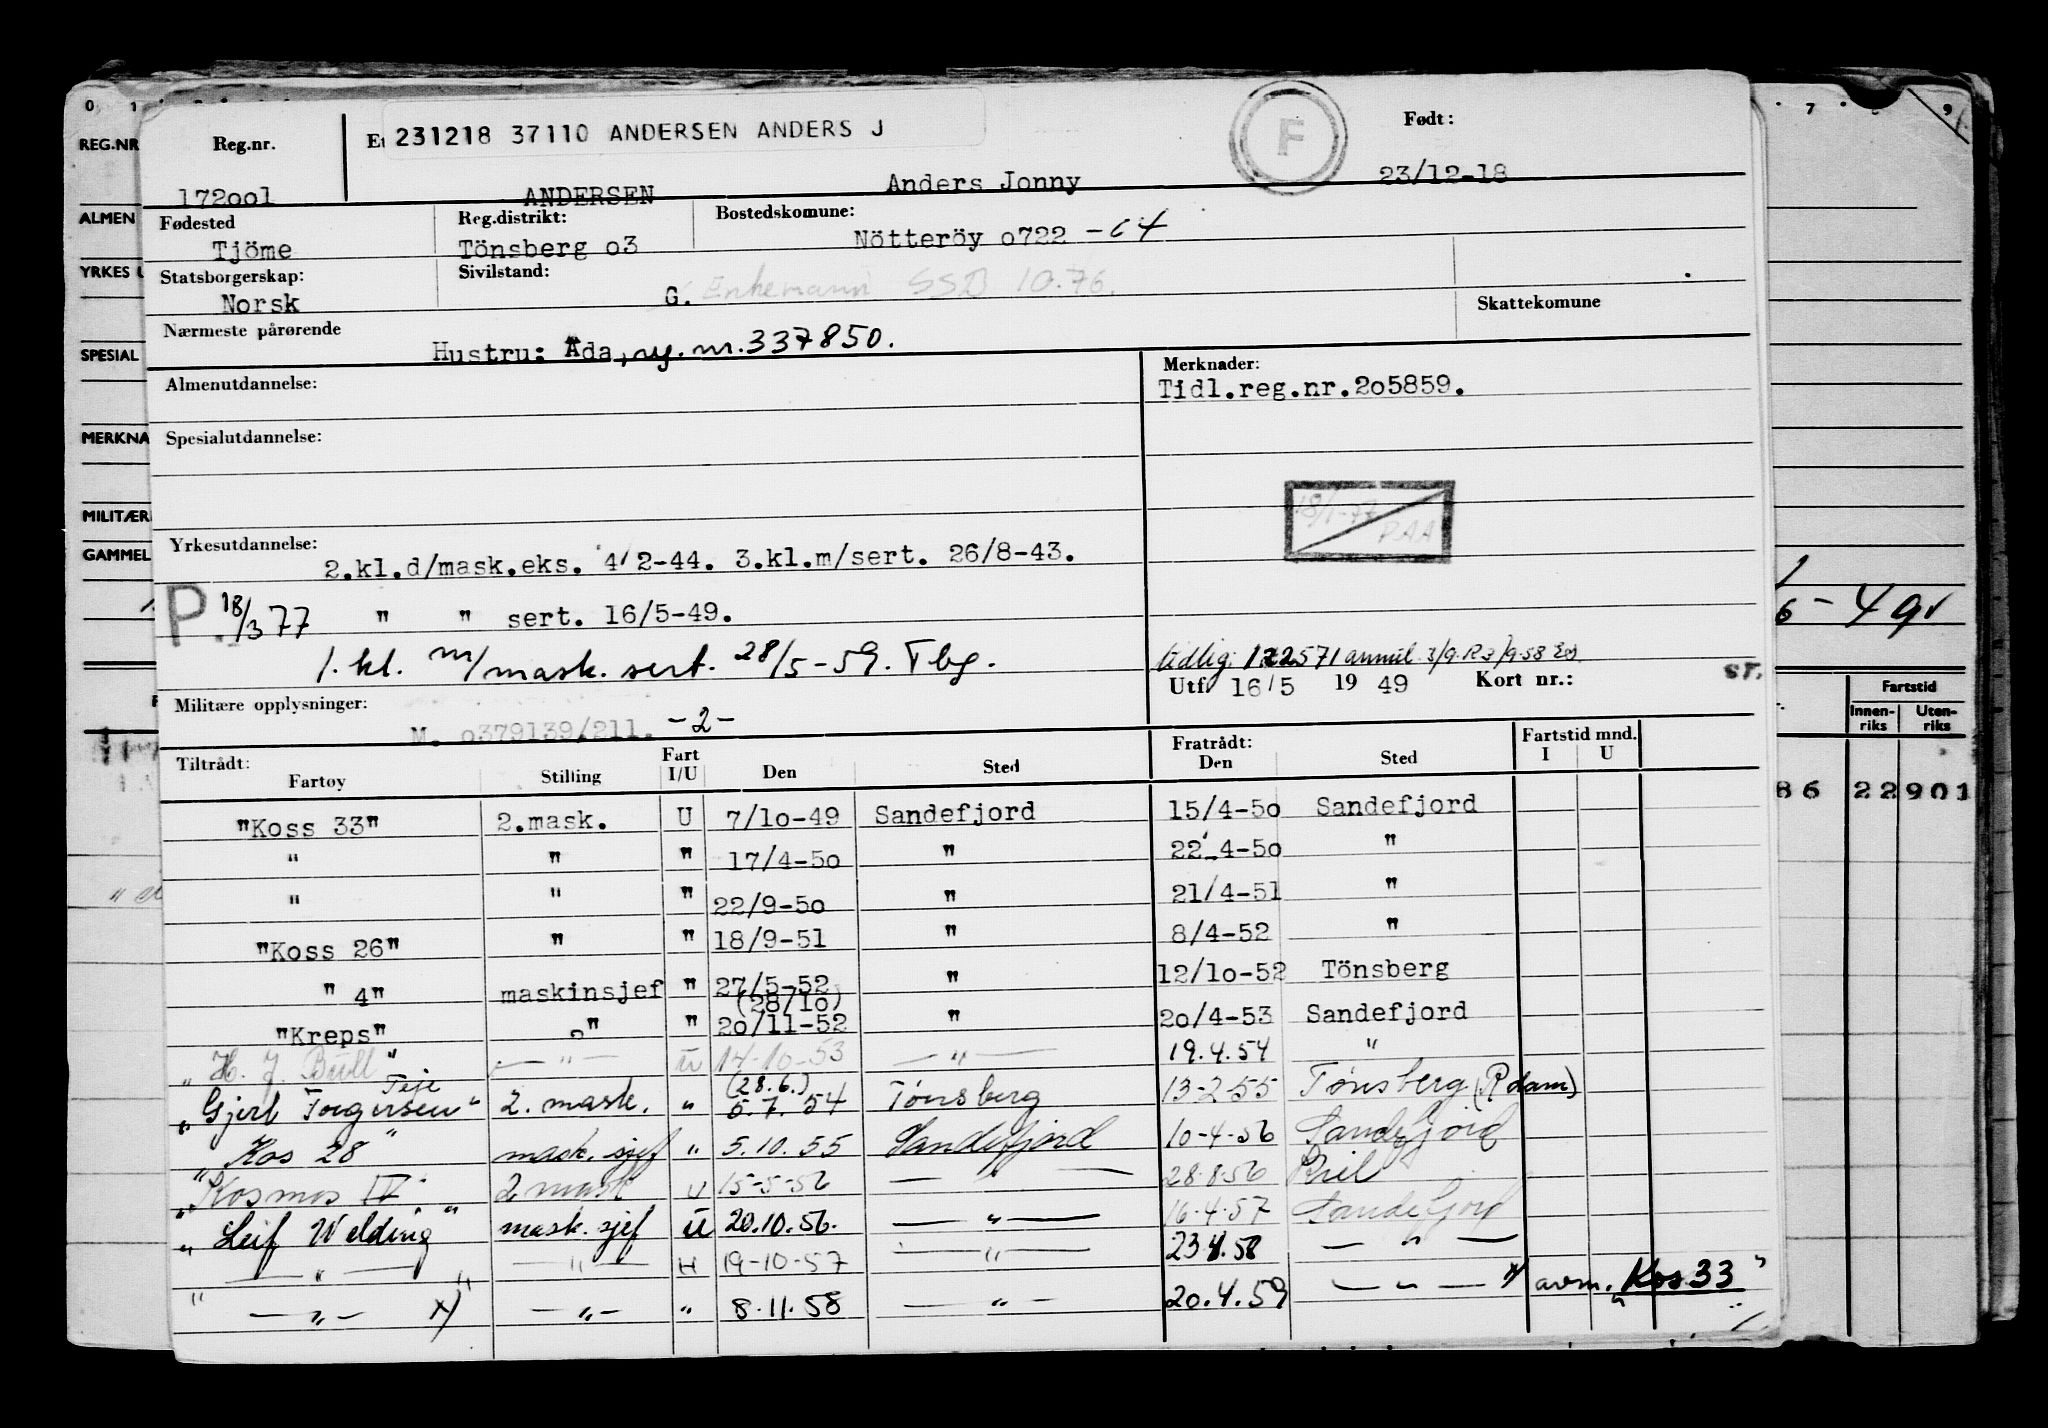 0 1 7 9
REG.NR
ALMEN
YRKES U
SPESIAL
MERKNA
MILITÆR
GAMMEL
Reg.nr. 231218 37110 ANDERSEN ANDERS J F Født:
172001 ANDERSEN Anders Jonny 23/12-18
Fødested Reg.distrikt: Bostedskomune:
Tjöme Tönsberg o3 Nötteröy o722 -64
Statsborgerskap: Sivilstand:
Norsk G. Enkemann SSB 10.76. Skattekomune
Nærmeste pårørende
Hustru: Ada, rg. nr. 337850.
Almenutdannelse: Merknader:
Tidl.reg.nr.2o5859.
Spesialutdannelse:
18/1-77 RAA
Yrkesutdannelse:
2.kl.d/mask.eks. 4/2-44. 3.kl.m/sert. 26/8-43.
P. 18/3 77 " " sert. 16/5-49.
1. kl. m/mask. sert. 28/5-59. Tbg.
tidlig: 122571 annul. 3/9.
Utf. 16/5 19 49 Kort nr.: ST.
Militære opplysninger:
M. o379139/211. -2-
Tiltrådt: Fratrådt: Fartstid mnd.
Fartøy Stilling Fart I/U Den Sted Den Sted I U
"Koss 33" 2.mask. U 7/1o-49 Sandefjord 15/4-5o Sandefjord
" " " 17/4-5o " 22/4-5o "
" " " 22/9-5o " 21/4-51 "
"Koss 26" " " 18/9-51 " 8/4-52 "
" 4" maskinsjef " 27/5-52 " 12/1o-52 Tönsberg
(28/1o)
"Kreps" " " 2o/11-52 " 2o/4-53 Sandefjord
"H. J. Bull" — " — U 14-10-53 — " — 19.4.54 "
Teje (28.6.)
"Gjert Torgersen" 2. mask. " 5.7.54 Tønsberg 13-2-55 Tønsberg (Rdam)
"Kos 28" mask. sjef " 5.10.55 Sandefjord 10-4-56 Sandefjord
"Kosmos IV" 2 mask U 15-5-56 — " — 28.8.56 Kiel
"Leif Welding" mask. sjef U 20.10.56. — " — 16.4.57 Sandefjord
— " — — " — U 19-10-57 — " — 23.4.58 — " —
" — " — x) " — " — " 8.11.58 — " — 20.4.59 — " — x) avm. "Kos 33"
6 - 4 gr
Fartstid
Innen-riks Uten-riks
86 22 901